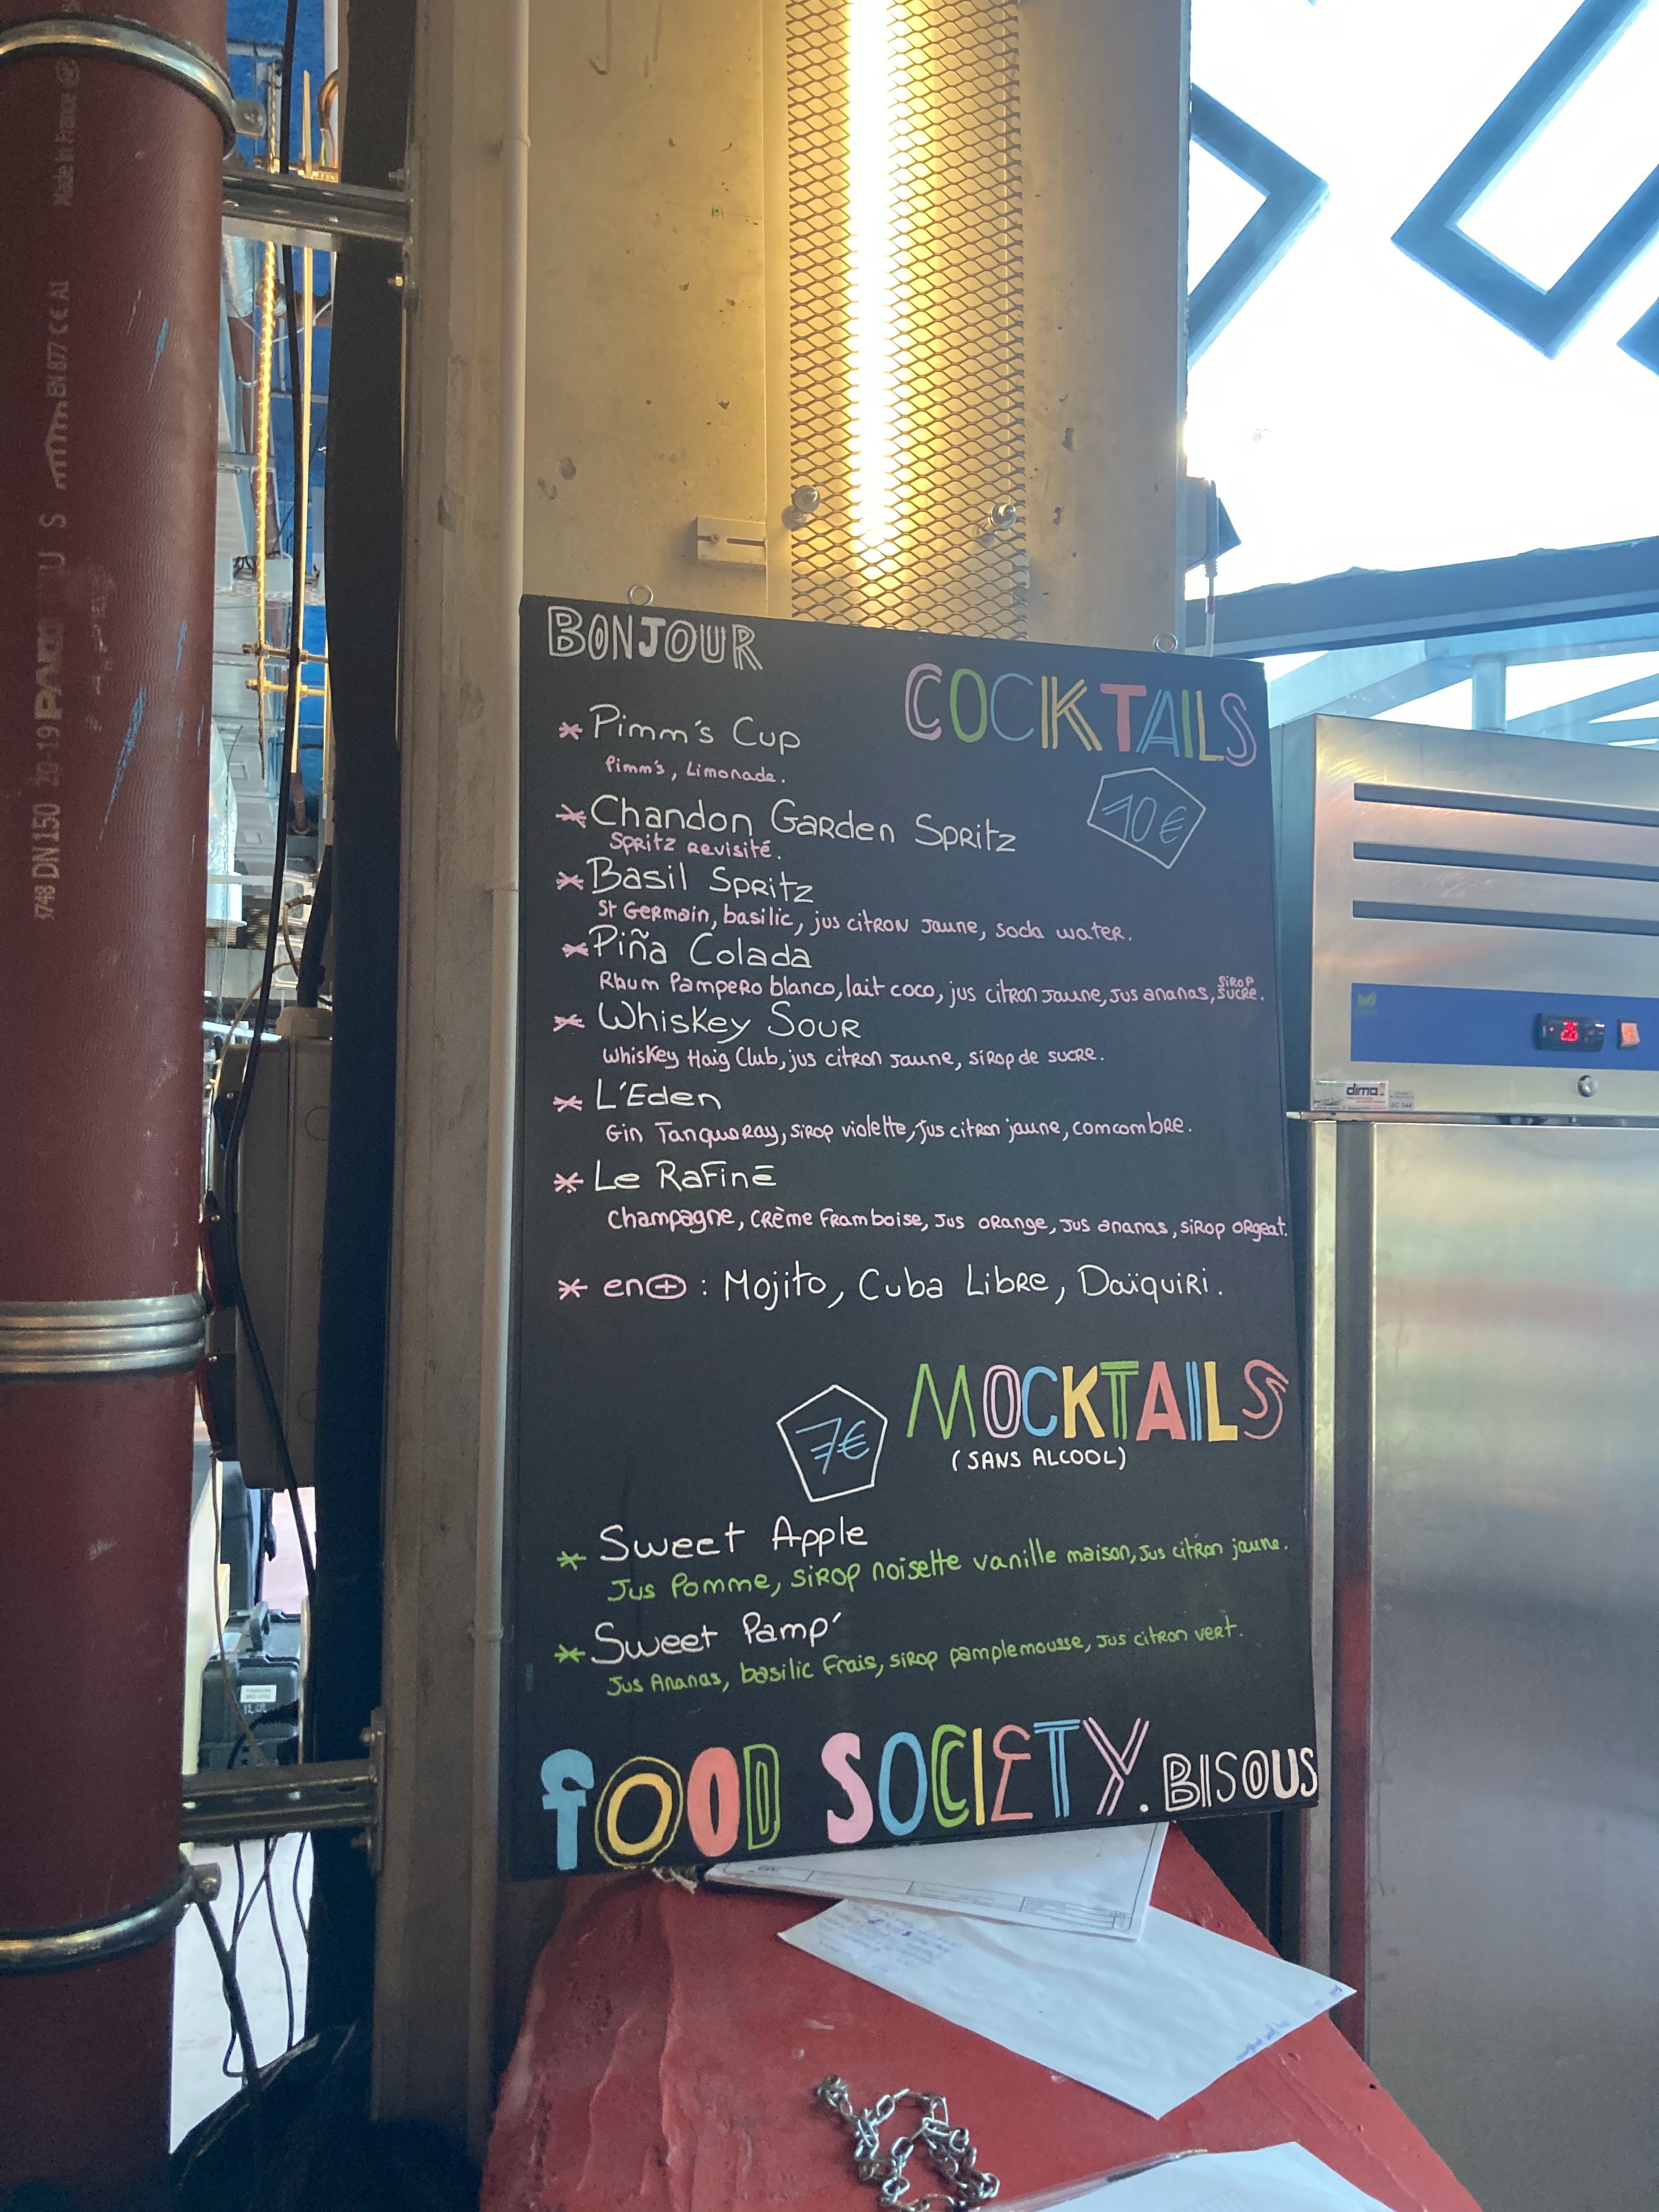 BONJOUR
COCKTAILS
10€
* Pimm's Cup
Pimm's, Limonade.
* Chandon Garden Spritz
Spritz revisité.
* Basil Spritz
St Germain, basilic, jus citron jaune, soda water.
* Piña Colada
Rhum Pampero blanco, lait coco, jus citron jaune, jus ananas, sirop sucre.
* Whiskey Sour
Whiskey Haig Club, jus citron jaune, sirop de sucre.
* L'Eden
Gin Tanqueray, sirop violette, jus citron jaune, comcombre.
* Le Rafiné
Champagne, crème framboise, jus orange, jus ananas, sirop orgeat.
* en + : Mojito, Cuba Libre, Daïquiri.
MOCKTAILS
7€
(SANS ALCOOL)
* Sweet Apple
Jus Pomme, sirop noisette vanille maison, jus citron jaune.
* Sweet Pamp'
Jus Ananas, basilic frais, sirop pamplemousse, jus citron vert.
FOOD SOCIETY. BISOUS
dima
Made in France
EN 877 CE A1
DN 150 20-19 PAM